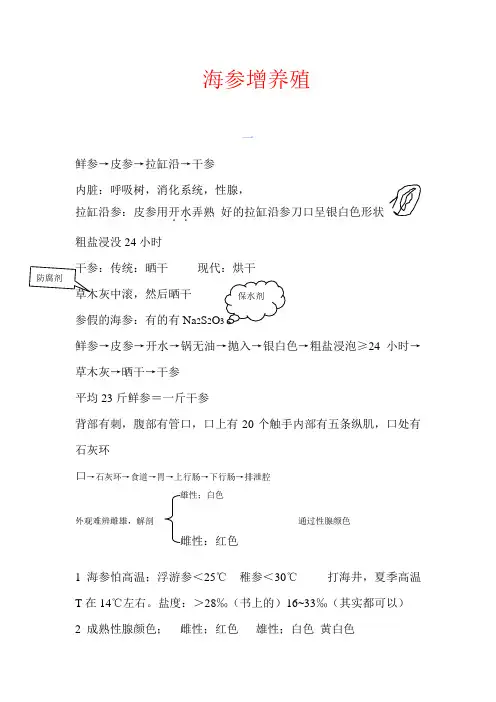 海参增养殖
一
鲜参→皮参→拉缸沿→干参
内脏：呼吸树，消化系统，性腺，
拉缸沿参：皮参用开水弄熟 好的拉缸沿参刀口呈银白色形状
粗盐浸没 24 小时
干参：传统：晒干 现代：烘干
防腐剂
草木灰中滚，然后晒干
保水剂
参假的海参：有的有 Na2S2O3
鲜参→皮参→开水→锅无油→抛入→银白色→粗盐浸泡≥24 小时→
草木灰→晒干→干参
平均 23 斤鲜参＝一斤干参
背部有刺，腹部有管口，口上有 20 个触手内部有五条纵肌，口处有
石灰环
口→石灰环→食道→胃→上行肠→下行肠→排泄腔
雄性：白色
外观难辨雌雄，解剖 通过性腺颜色
雌性：红色
1 海参怕高温；浮游参＜25℃ 稚参＜30℃ 打海井，夏季高温
T 在 14℃左右。盐度：＞28‰（书上的）16~33‰（其实都可以）
2 成熟性腺颜色； 雌性；红色 雄性；白色 黄白色